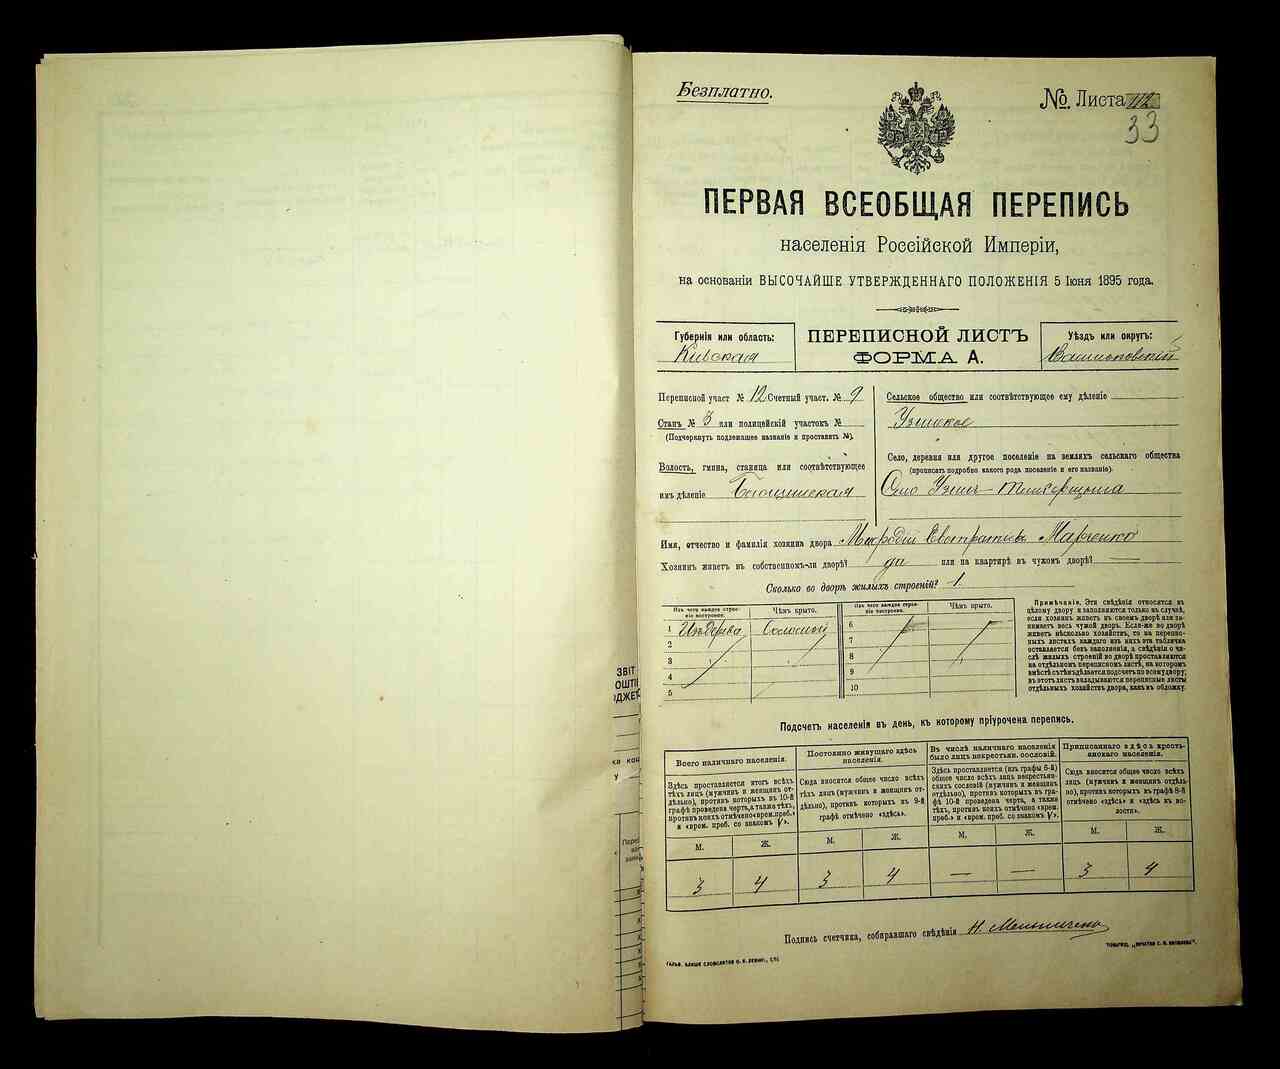 Безплатно.
№. Листа 112
33
ПЕРВАЯ ВСЕОБЩАЯ ПЕРЕПИСЬ
населенія Россійской Имперіи,
на основаніи ВЫСОЧАЙШЕ УТВЕРЖДЕННАГО ПОЛОЖЕНІЯ 5 Іюня 1895 года.
Губернія или область:
Кіевская
ПЕРЕПИСНОЙ ЛИСТЪ
ФОРМА А.
Уѣздъ или округъ:
Васильковскій
Переписной участ № 12 Счетный участ. № 9
Станъ № 3 или полицейскій участокъ №
(Подчеркнуть подлежащее названіе и проставить №).
Волость, гмина, станица или соотвѣтствующее
имъ дѣленіе
Сельское общество или соотвѣтствующее ему дѣленіе
Село, деревня или другое поселеніе на земляхъ сельскаго общества
(прописать подробно какого рода поселеніе и его названіе).
Село Узинъ
Имя, отчество и фамилія хозяина двора Марченко
Хозяинъ живетъ въ собственномъ-ли дворѣ? да или на квартирѣ въ чужомъ дворѣ? —
Сколько во дворѣ жилыхъ строеній? 1
Изъ чего каждое строеніе построено.
Чѣмъ крыто.
Изъ чего каждое строеніе построено.
Чѣмъ крыто.
1 Изъ дерева Соломой
2
3
4
5
6
7
8
9
10
Примѣчаніе. Эти свѣдѣнія относятся къ
цѣлому двору и заполняются только въ случаѣ,
если хозяинъ живетъ въ своемъ дворѣ или за-
нимаетъ весь чужой дворъ. Если-же во дворѣ
живетъ нѣсколько хозяйствъ, то на перепис-
ныхъ листахъ каждаго изъ нихъ эта табличка
оставляется безъ заполненія, а свѣдѣнія о чи-
слѣ жилыхъ строеній во дворѣ проставляются
на отдѣльномъ переписномъ листѣ, на которомъ
вмѣстѣ съ тѣмъ дѣлается подсчетъ по всему двору;
въ этотъ листъ вкладываются переписные листы
отдѣльныхъ хозяйствъ двора, какъ въ обложку.
Подсчетъ населенія въ день, къ которому пріурочена перепись.
Всего наличнаго населенія.
Здѣсь проставляется итогъ всѣхъ
тѣхъ лицъ (мужчинъ и женщинъ от-
дѣльно), противъ которыхъ въ 10-й
графѣ проведена черта, а также тѣхъ,
противъ коихъ отмѣчено «врем. преб.»
и «врем. преб. со знакомъ V».
Постоянно живущаго здѣсь
населенія.
Сюда вносится общее число всѣхъ
тѣхъ лицъ (мужчинъ и женщинъ от-
дѣльно), противъ которыхъ въ 9-й
графѣ отмѣчено «здѣсь».
Въ числѣ наличнаго населенія
было лицъ некрестьян. сословій.
Здѣсь проставляется (изъ графы 6-й)
общее число всѣхъ лицъ некрестьян-
скихъ сословій (мужчинъ и женщинъ
отдѣльно), противъ которыхъ въ гра-
фѣ 10-й проведена черта, а также
тѣхъ, противъ коихъ отмѣчено «врем.
преб.» и «врем. преб. со знакомъ V».
Приписаннаго здѣсь кресть-
янскаго населенія.
Сюда вносится общее число всѣхъ
лицъ (мужчинъ и женщинъ отдѣль-
но), противъ которыхъ въ графѣ 8-й
отмѣчено «здѣсь» и «здѣсь въ во-
лости».
М. Ж. М. Ж. М. Ж. М. Ж.
3 4 3 4 — — 3 4
Подпись счетчика, собиравшаго свѣдѣнія
ЗВІТ